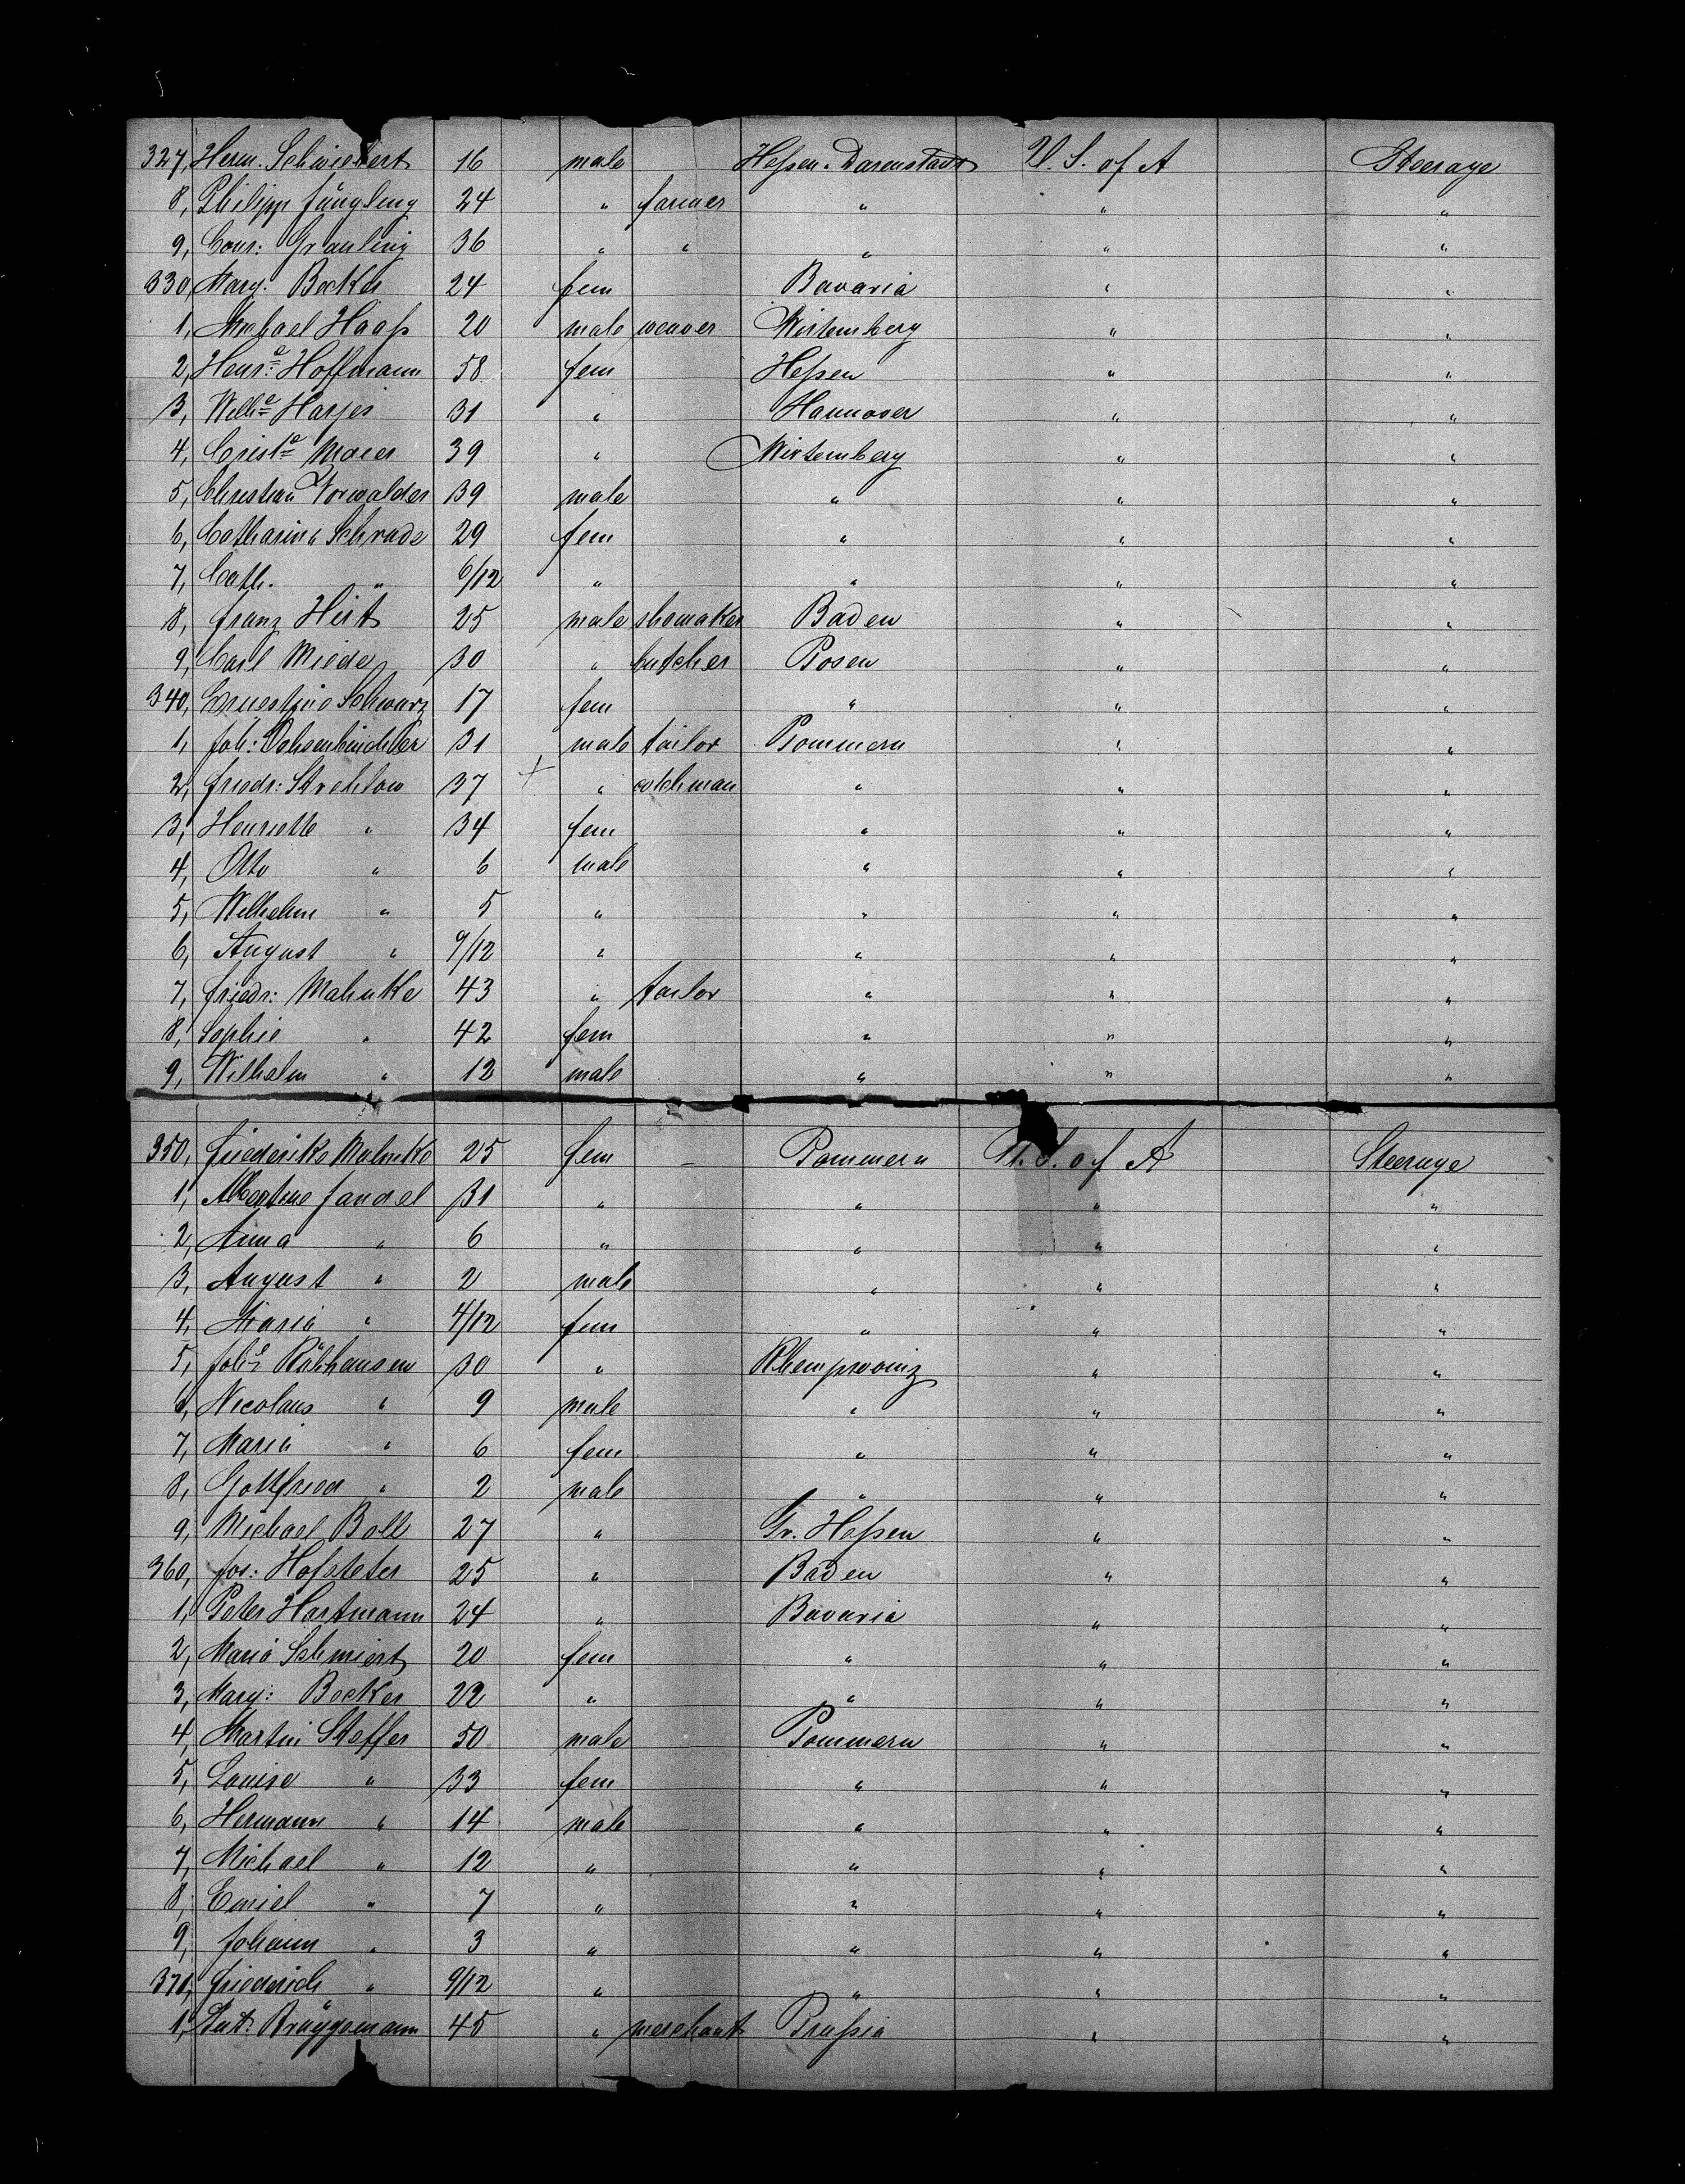 327, Herm. Schwiebert 16 male Heßen-Darmstadt U. S. of A Steerage
8, Philipp Jüngling 24 " farmer " " "
9, Conr: Grauling 36 " " " " "
330, Marg. Becker 24 fem Bavaria " "
1, Michael Haaß 20 male weaver Wirtemberg " "
2, Henr.e Hoffmann 58 fem Heßen " "
3, Wilh.e Harjes 31 " Hannover " "
4, Crist.e Maier 39 " Wirtemberg " "
5, Christian Vorwalder 39 male " " "
6, Catharina Schrade 29 fem " " "
7, Cath. " 6/12 " " " "
8, Franz Hirt 25 male shomaker Baden " "
9, Carl Miede 30 " butcher Posen " "
340, Ernestine Schwarz 17 fem " " "
1, Joh: 31 male tailor Pommern " "
2, Friedr: Strehlow 37 + " " " "
3, Henriette " 34 fem " " "
4, Otto " 6 male " " "
5, Wilhelm " 5 " " " "
6, August " 9/12 " " " "
7, Friedr: Mahnke 43 " tailor " " "
8, Sophie " 42 fem " " "
9, Wilhelm " 12 male " " "
350, Friederike Mahnke 25 fem Pommern U. S. of A Steerage
1, Albertine Jandel 31 " " " "
2, Anna " 6 " " " "
3, August " 2 male " " "
4, Maria " 4/12 fem " " "
5, 30 " Rheinprovinz " "
6, Nicolaus " 9 male " " "
7, Maria " 6 fem " " "
8, Gottfried " 2 male " " "
9, Michael Boll 27 " Gr. Heßen " "
360, Jos: Hofsteter 25 " Baden " "
1, Peter Hartmann 24 " Bavaria " "
2, Maria Schmiert 20 fem " " "
3, Marg: Becker 22 " " " "
4, Martin Steffer 50 male Pommern " "
5, Louise " 33 fem " " "
6, Hermann " 14 male " " "
7, Michael " 12 " " " "
8, Emiel " 7 " " " "
9, Johann " 3 " " " "
370, Friederich " 9/12 " " " "
1, Brüggemann 45 " merchant Prußia " "